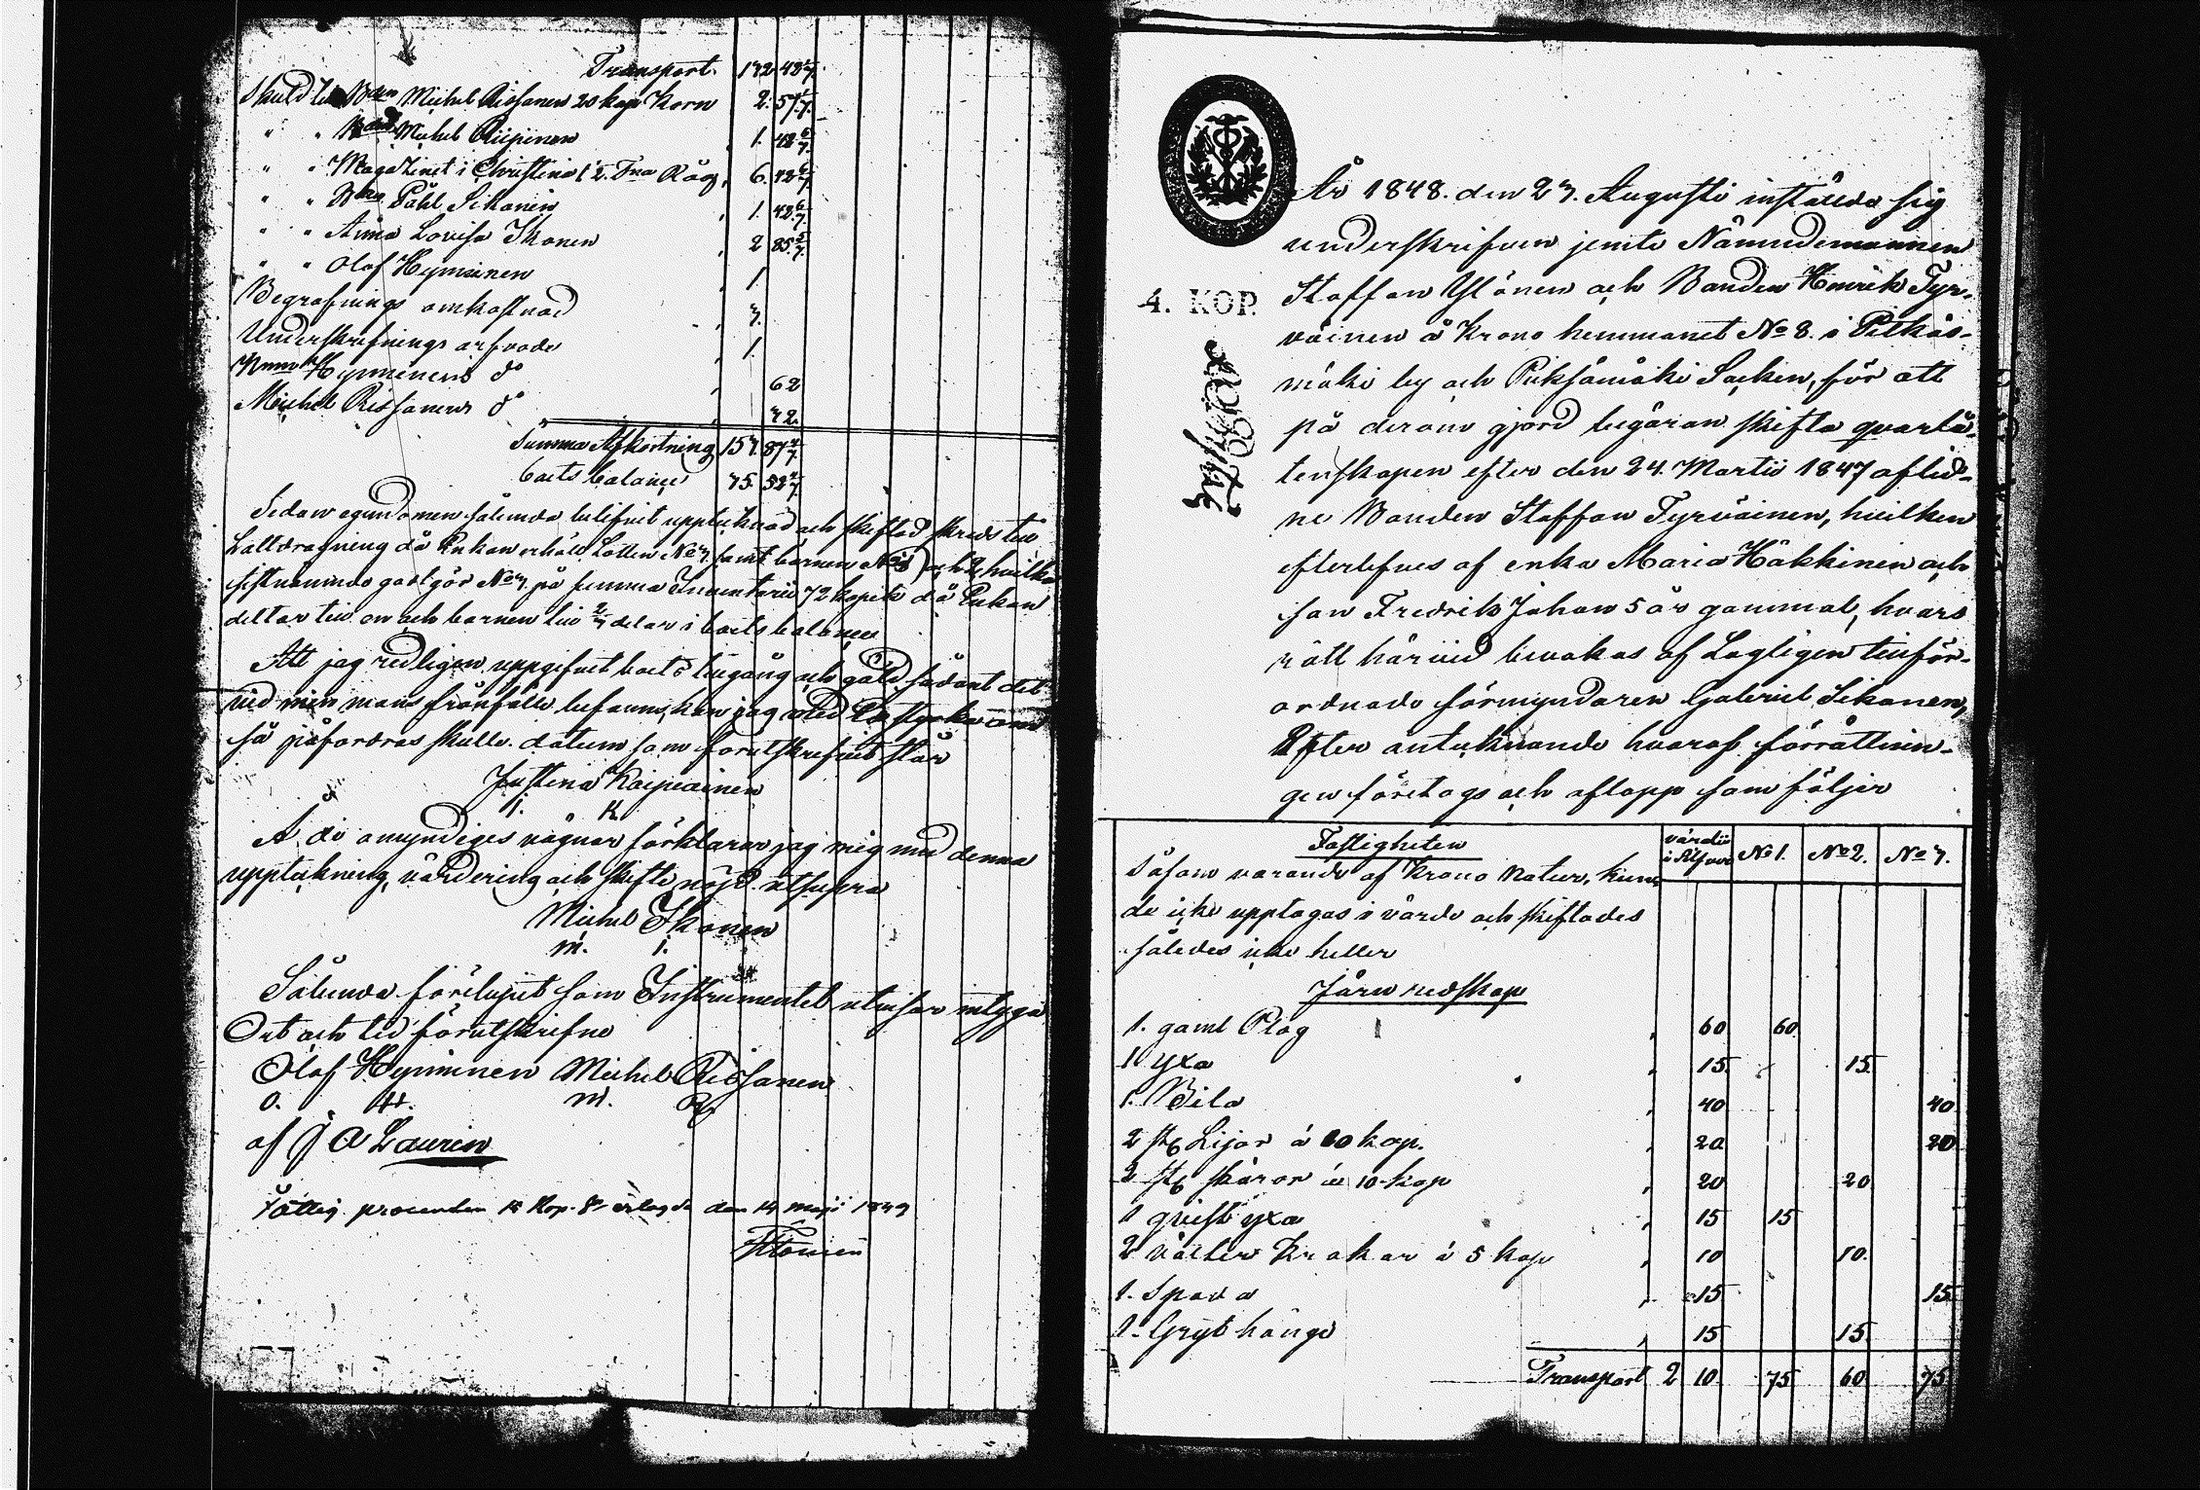 Transport. 142 48 4/7.
Skuld till Bden Michel Rissanen 20 kap Korn 2. 57 1/7.
" " Bden Michel Riipinen 1. 42 6/7.
" " Magazinet i Christina 1/2 Tna Råg 6. 42 6/7
" " Bden Påhl Sikanen 1. 42 6/7
" " Anna Lovisa Ikonen 2 85 5/7.
" " Olof Hyminen 1.
Begrafnings omkostnad 7.
Underskrifnings arfvode 1.
Hyminens do 62
Michel Rissanens do 72.
Summa Afkortning 157. 87 4/7.
boets balance 75. 52 4/7.
Sedan egendomen sålunda blifvit upptecknad och skiftad skreds till
Lottdragning då Enkan erhöll Lotten No 3. samt barnen No 1 och 2, hvilka
sistnämnde godtgör No 3. på summa Inventarii 72 kopek då Enkan
deltar till en och barnen till 2/3 delar i boets balance
Att jag redligen uppgifvit boets tillgång och gäld sådant det
vid min mans frånfälle befanns, kan jag med Ed styrka om
så påfordras skulle. datum som förutskrifvit står
Justina Kaipiainen
J. K.
Å de omyndiges vägnar förklarar jag mig med denna
uppteckning, värdering och skifte nöjd. utsupra
Michel Ikonen
m. i.
Sålunda förelupit som Instrumentet utvisar intyga
Ort och tid förutskrifne
Olof Hyminen Michel Rissanen
O. H. M. R.
af J A Laurin
Fattig procenten 18 Kop. Sr erlagde den 14 maji 1849
År 1848. den 27. Augusti inställde sig
underskrifven jemte Nämndemannen
Staffan Ylönen och Bonden Henrik Tyr-
väinen å Krono hemmanet No 8. i Pitkäs-
mäki by och Pieksämäki Socken, för att
på derom gjord begäran skifta qvarlå-
tenskapen efter den 24. Martii 1847 aflid-
ne Bonden Staffan Tyrväinen, hvilken
efterlefves af enka Maria Häkkinen och
son Fredrik Johan 5 år gammal, hvars
rätt härvid bevakas af Lagligen tillför-
ordnade förmyndaren Gabriel Sikanen,
Efter antecknande hvaraf förrättnin-
gen företogs och aflopp som följer
4. KOP.
Fastigheten värde i Silfver No 1. No 2. No 3.
Såsom varande af Krono Natur, kun-
de icke upptagas i värde och skiftades
således icke heller
Järn redskap
1. gaml Plog , 60 60.
1 yxa , 15. 15.
1. Bila , 40 40
2 st Lijor à 10 kop. , 20 20
2 st skäror à 10 kop , 20 20
1 qvist yxa , 15 15
2 Krokar à 5 kop , 10 10.
1. Spada , 15 15.
1. Gryt hänge , 15 15.
Transport 2 10. 75 60 75